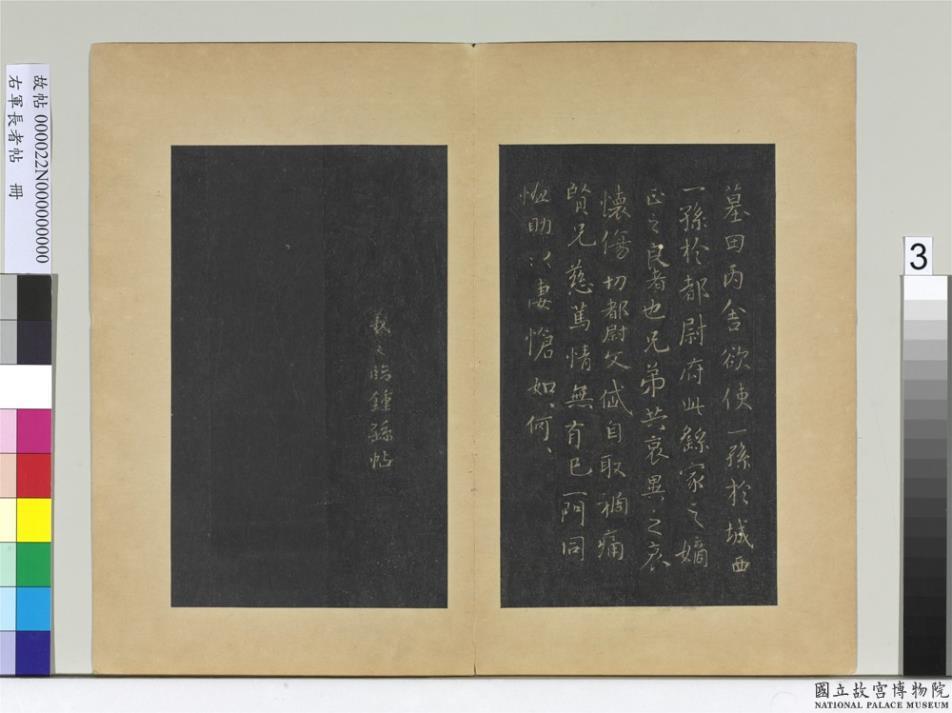 墓田丙舍欲使一孫於城西
一孫於都尉府此繇家之嫡
正之良者也兄弟共哀異之哀
懷傷切都尉文岱自取禍痛
賢兄慈篤情無有已一門同
恤助以悽愴如、何、
羲之臨鍾繇帖
故帖 000022N000000000
右軍長者帖 冊
3
國立故宮博物院
NATIONAL PALACE MUSEUM